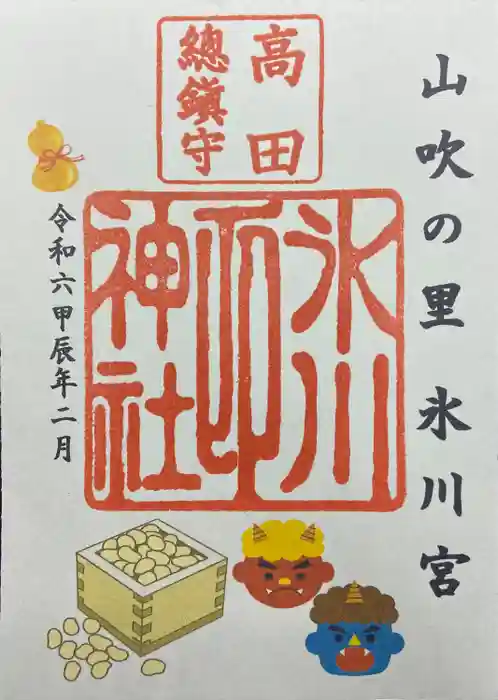 山吹の里 氷川宮
高田
總鎮守
氷川
印
神社
令和六甲辰年二月